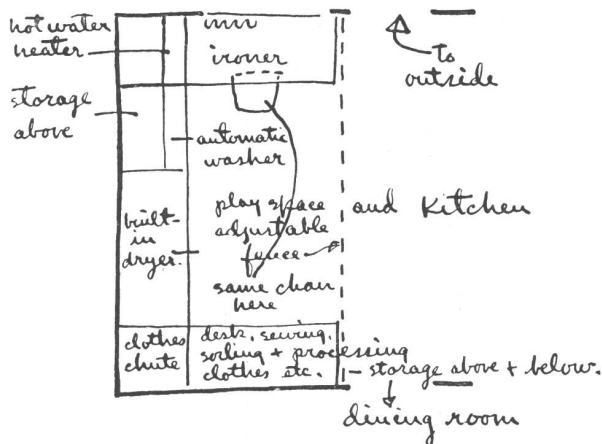 hot water
heater
ironer
To
outside
storage
above
automatic
washer
play space
adjustable
fence
and Kitchen
built-
in
dryer.
same chair
here
clothes
chute
desk, sewing,
sorting + processing
clothes etc.
storage above + below.
dining room